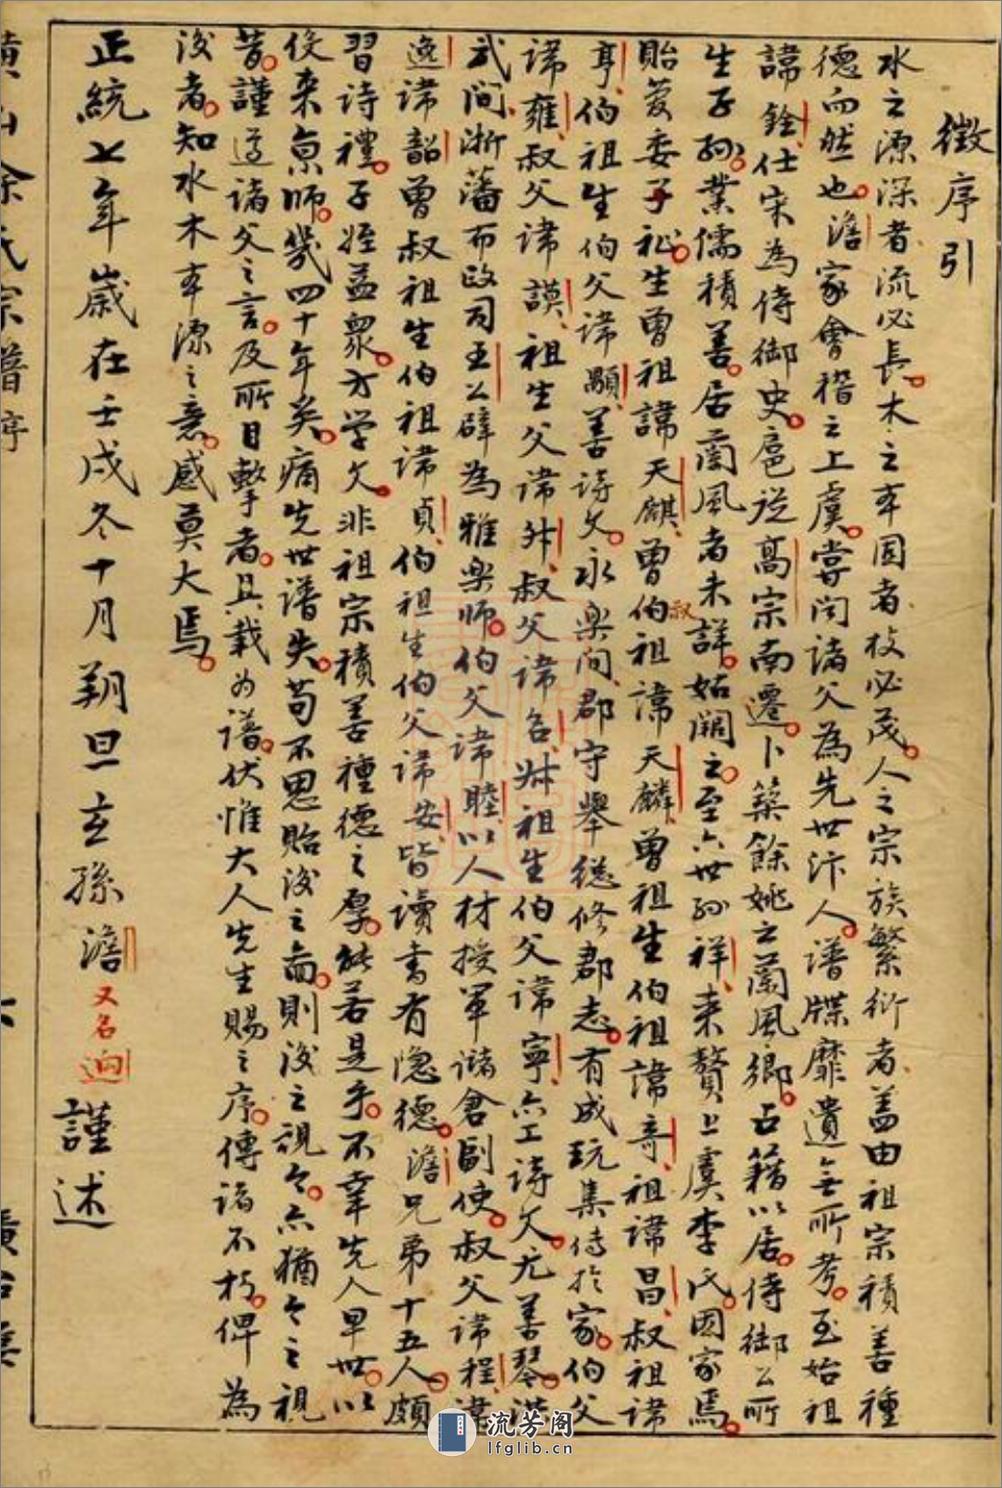 徵序引
水之源深者流必長木之本固者枝必茂人之宗族繁衍者蓋由祖宗積善種
德而然也澹家會稽之上虞嘗闻诸父為先世汴人譜牒靡遺無所考至始祖
諱銓仕宋為侍御史扈從高宗南遷卜築餘姚之蘭風鄉占籍以居侍御公所
生子孫業儒積善居蘭風者未詳姑闕之至六世孙祥来贅上虞李氏因家焉
貽受委子祉生曾祖諱天麒曾伯叔祖諱天麟曾祖生伯祖諱竒祖諱昌叔祖讳
亨伯祖生伯父讳顯善诗文永樂间郡守舉總修郡志有成玩集傳於家伯父
讳雍叔父讳謨祖生父讳昇叔父讳名叔祖生伯父讳寧亦工诗文尤善琴洪
武间浙藩布政司王公辟為雅楽師伯父讳睦以人材授軍储倉副使叔父讳程讳
逸讳韶曾叔祖生伯祖讳貞伯祖生伯父讳安皆讀書有隐德澹兄弟十五人頗
習诗禮子姪益衆方学文非祖宗積善種德之厚能若是乎不幸先人早世以
役来京師幾四十年矣痛先世譜失苟不思貽後之而則後之視今亦猶今之視
昔謹遵诸父之言及所目擊者具載为譜伏惟大人先生賜之序傳诸不朽俾為
後者知水木本源之意感莫大焉
正統七年歲在壬戌冬十月朔旦玄孫澹又名迥謹述
黄山余氏宗譜序
六
流芳阁
lfglib.cn